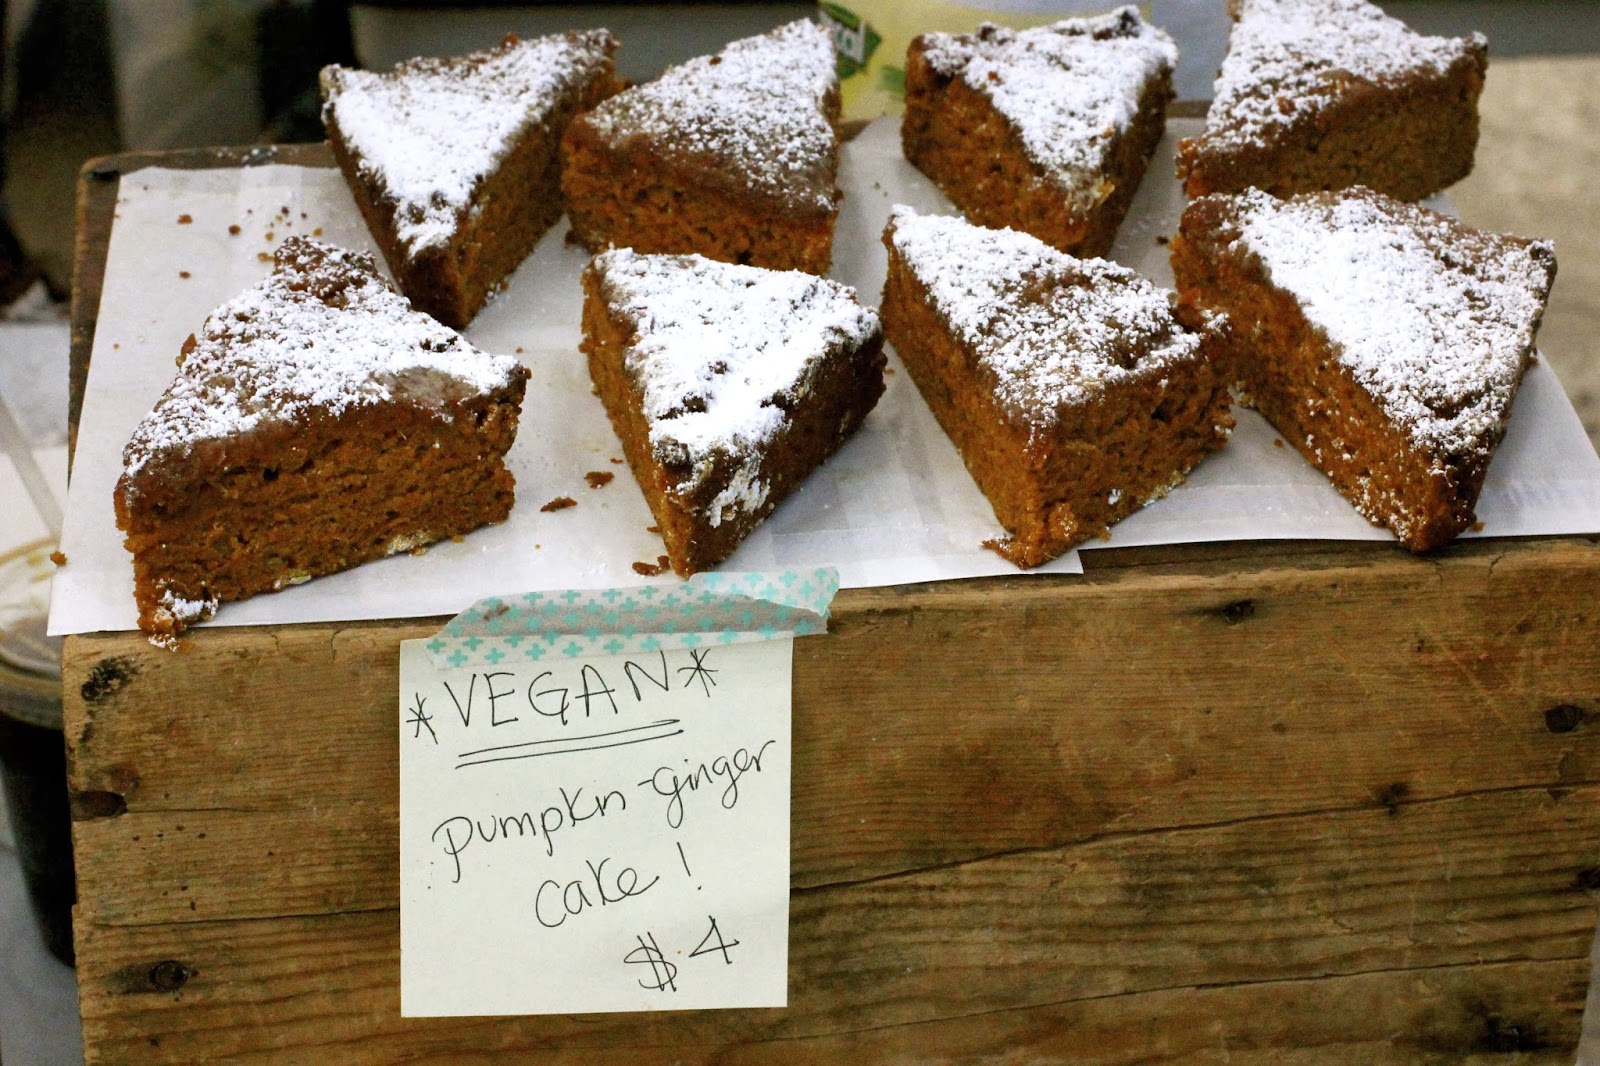 *VEGAN*
pumpkin-ginger
cake!
$4